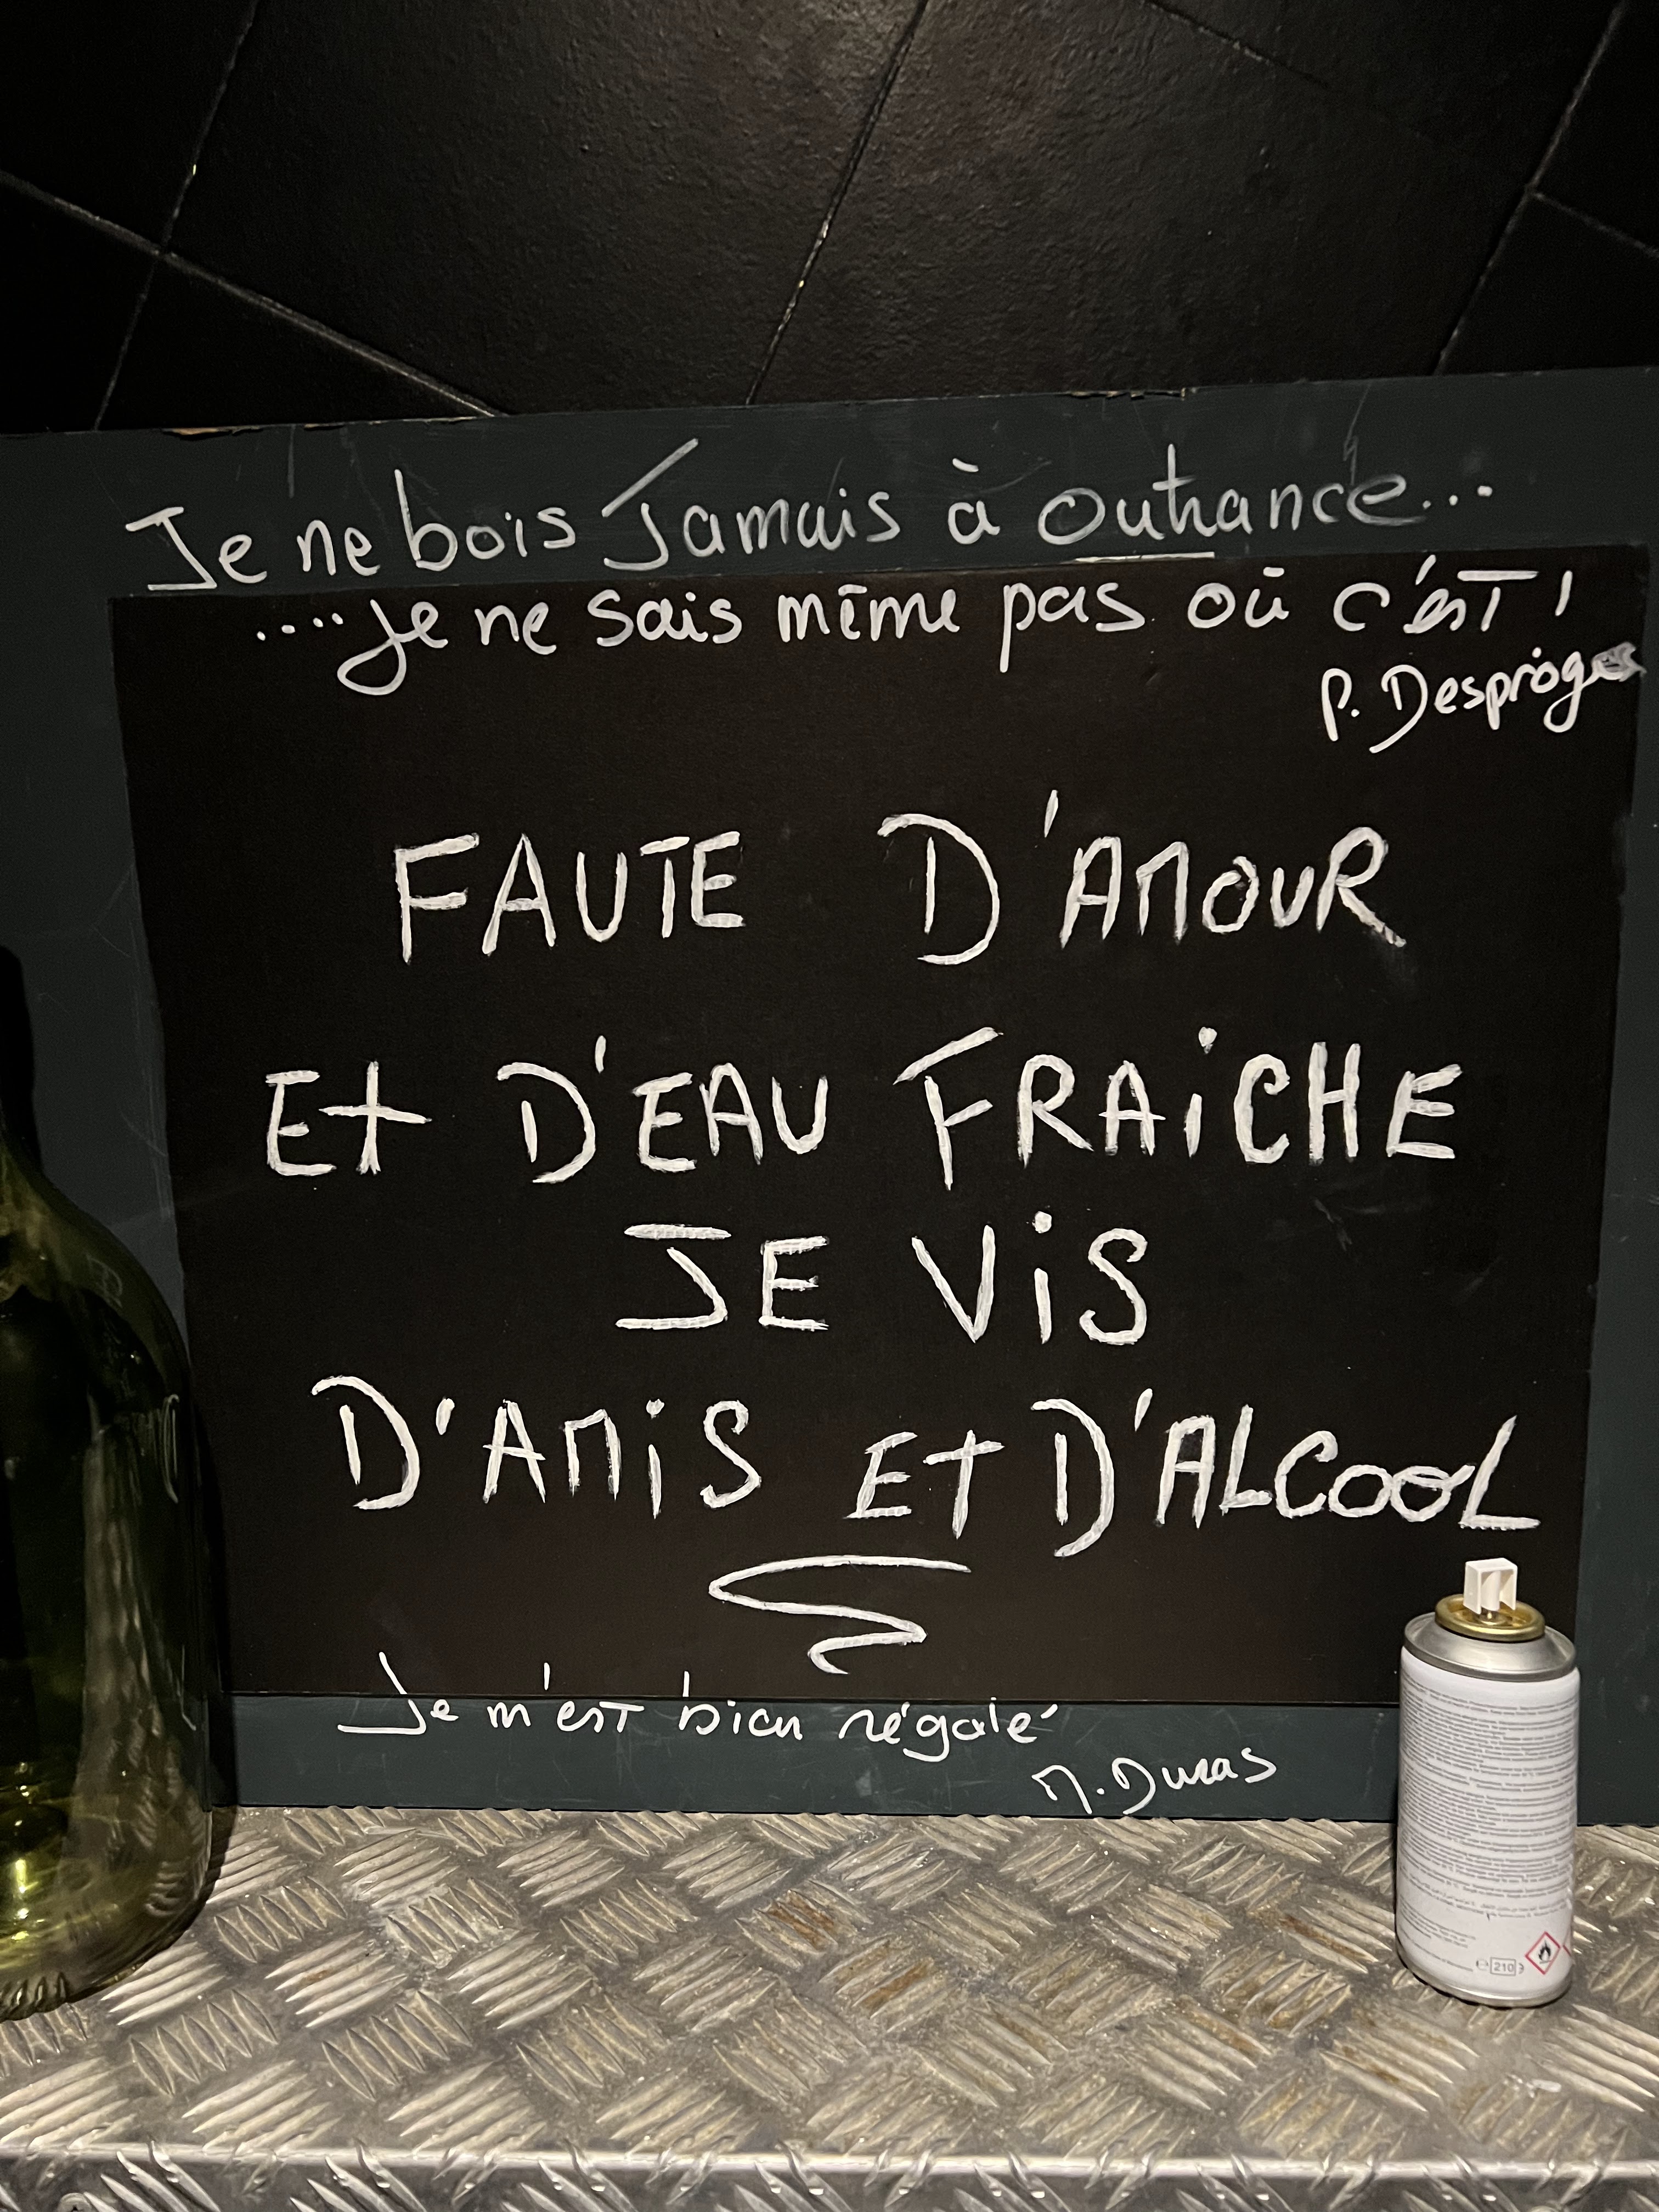 Je ne bois Jamais à Outrance...
....Je ne sais même pas où c'est !
P. Desproges
FAUTE D'AMOUR
Et D'EAU FRAiCHE
JE ViS
D'AMiS Et D'ALCOOL
Je m'est bien régalé
M. Duras
210